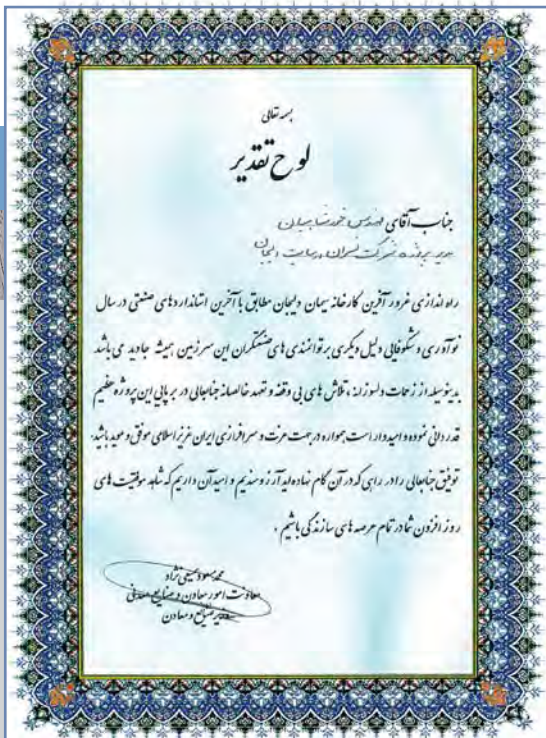 بسمه تعالی
لوح تقدیر
جناب آقای مهندس
مدیر پروژه شرکت در سایت دلیجان
راه اندازی غرور آفرین کارخانه سیمان دلیجان مطابق با آخرین استانداردهای صنعتی در سال
نوآوری و شکوفایی دلیل دیگری بر توانمندی های صنعتگران این سرزمین همیشه جاوید می باشد
بدینوسیله از زحمات دلسوزانه، تلاش های بی وقفه و تعهد خالصانه جنابعالی در برپایی این پروژه عظیم
قدردانی نموده و امیدوار است همواره در جهت عزت و سرافرازی ایران عزیز اسلامی موفق و موید باشید.
توفیق جنابعالی را در راهی که در آن گام نهاده اید آرزومندیم و امید آن داریم که شاهد موفقیت های
روز افزون شما در تمام عرصه های سازندگی باشیم .
محمد مسعود سمیعی نژاد
معاونت امور معادن و صنایع معدنی
وزیر صنایع و معادن